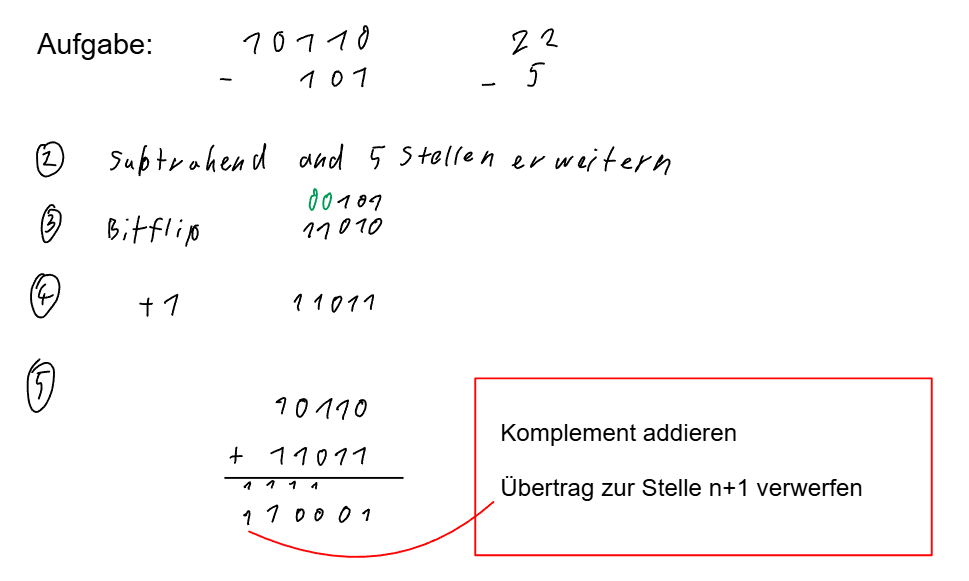 Aufgabe: 10110 22
- 101 - 5
② Subtrahend and 5 Stellen erweitern
00101
③ Bitflip 11010
④ +1 11011
⑤
10110
+ 11011
1111
110001
Komplement addieren
Übertrag zur Stelle n+1 verwerfen